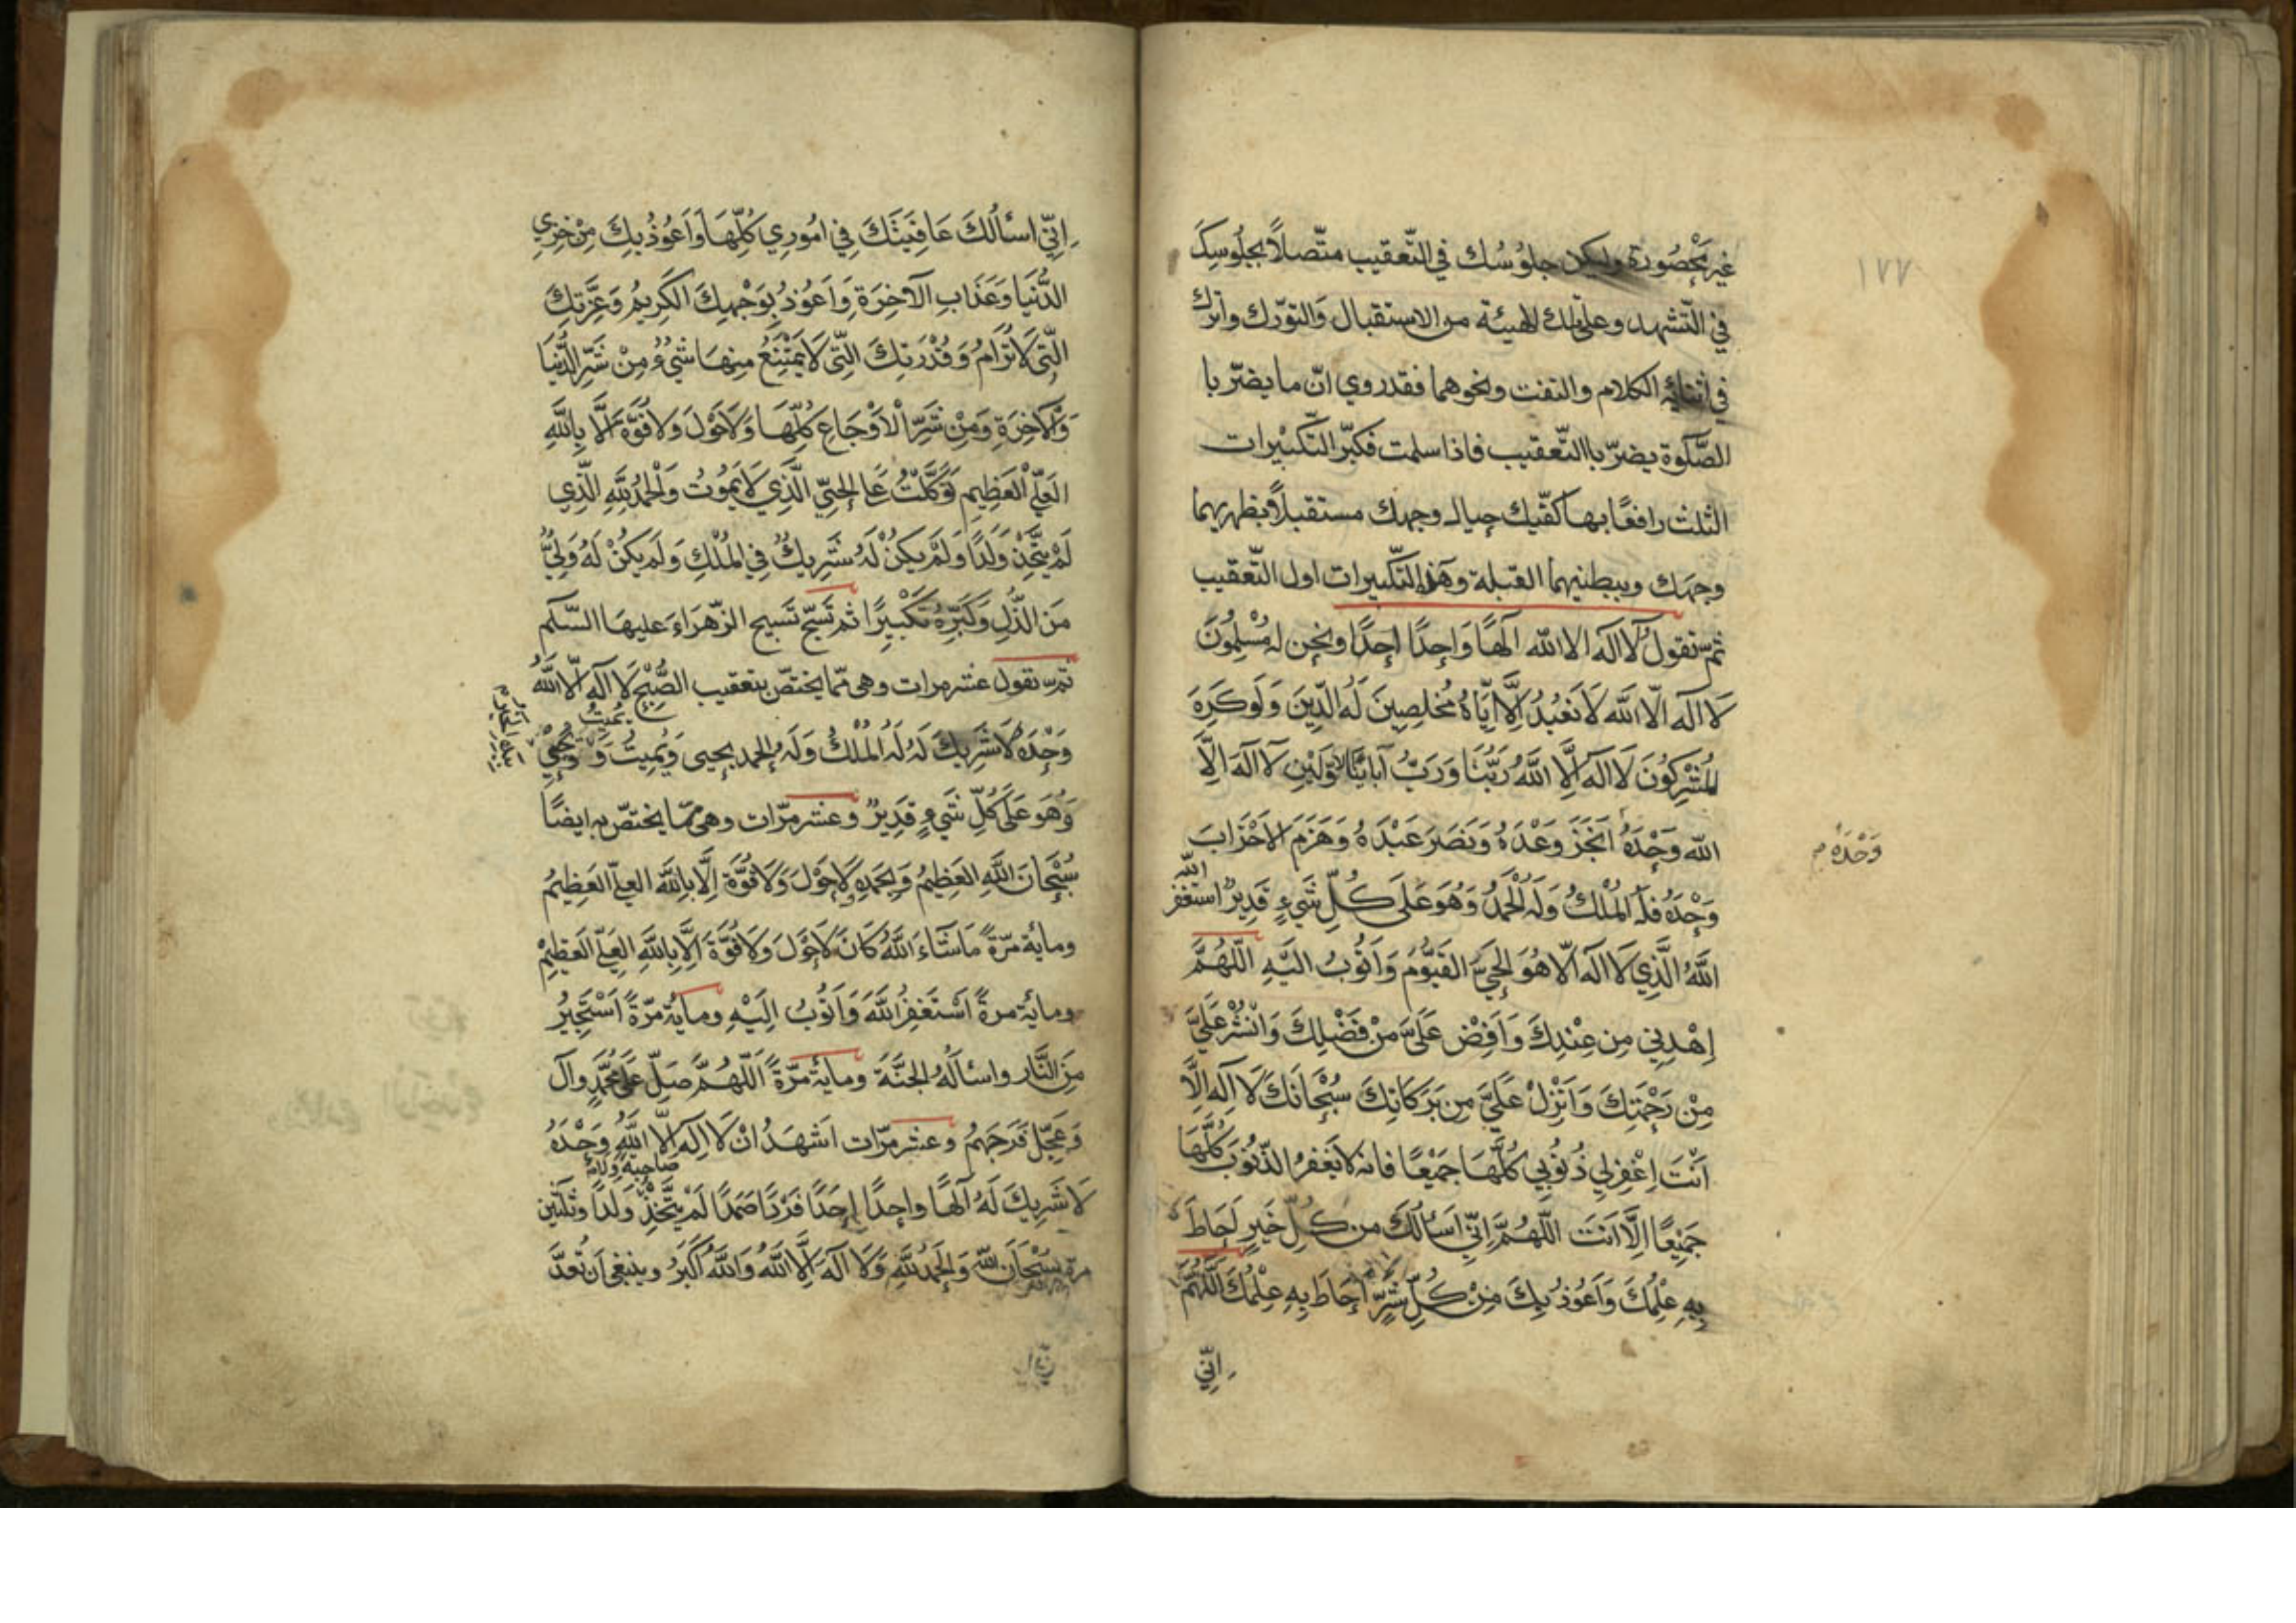 ١٧٧
غير محصورة وليكن جلوُسُك في التّعقيب متّصلاً بجلُوسِكَ
في التّشهد وعلى تلك الهيئة من الاستقبال وَالتورّك واترك
في اثنائه الكلام والتفت ونحوهما فقد روي انّ ما يضرّ با
الصَّلٰوة يضرّ باالتّعقيب فاذا سلمت فكبّر التّكبيرات
الثلث رافعًا بها كفّيك حيال وجهك مستقبلاً بظهريهما
وجهك وببطنيهما القبلة وهٰذه التّكبيرات اول التّعقيب
ثمّ تقول لَا الٓه الا الله الٓهًا وَاحِدًا احِدًا ونحن له مُسْلِمُونَ
لَا الٓه الّا الله لَا نَعْبُدُ اِلَّا اِيّاهُ مُخلِصِينَ لَهُ الدّينَ وَلَوكَرِهَ
المُشْرِكُونَ لَا الٓه اِلَّا اللَّهُ رَبُّنَا وَرَبُّ آبائِنَا الاوّلَيْنِ لَا الٓهَ اِلَّا
الله وَحْدَهُ اَنْجَزَ وَعْدَهُ وَنَصَرَ عَبْدَهُ وَهَزَمَ الاَحْزَابَ
وَحْدَهُ م
وَحْدَهُ فلَهُ المُلْكُ وَلَهُ الْحَمْدُ وَهُوَ عَلَى كُلِّ شَيءٍ قَدِيرٌ استغفر
الله
اللَّهُ الَّذِي لَا الٓه الّا هُوَ الحَيَّ القَيّوُمُ وَاَتُوبُ اليَهِ اللّهُمَّ
اِهْدِنِي مِن عِنْدِكَ وَاَفِضْ عَلَيَّ مِنْ فَضْلِكَ وَانْشُرْ عَلَيَّ
مِنْ رَحْمَتِكَ وَاَنْزِلْ عَلَيَّ مِن بَرَكاتِكَ سُبْحَانَكَ لَا اِلٓه اِلَّا
اَنْتَ اِغْفِرلِي ذُنُوبِي كُلَّهَا جَمْيعًا فانه لا يَغفرُ الذّنُوبَ كُلَّهَا
جَمْيعًا اِلَّا اَنتَ اللّهُمَّ اِنّي اَسألُكَ من كُلِّ خَيرٍ اَحَاطَ
بِهِ عِلْمُكَ وَاَعُوذُ بِكَ مِنْ كُلِّ شَرٍّ احَاطَ بِهِ عِلْمُكَ اللّهُمَّ
اِنّي
اِنّي اسألُكَ عَافِيَتَكَ فِي امُورِي كُلِّهَا وَاَعُوذُ بِكَ مِنْ خِزيِ
الدُّنيَا وَعَذَابِ الآخِرَةِ وَاَعُوذُ بِوَجْهِكَ الكَرِيمُ وَعِزّتِكَ
الّتِي لَا تُرَامُ وَقُدْرَتِكَ الّتِى لَا يَمْتَنِعُ مِنهَا شَيْءُ مِنْ شَرِّ الدُّنيَا
وَالآخِرَةِ وَمِنْ شَرِّ الْاَوْجَاعِ كُلِّهَا وَلَاحَوْلَ وَلَا قُوَّةَ الّا بِاللَّهِ
العَلِيِّ الْعَظِيمِ تَوَكَّلْتُ عَلَى الحَيِّ الَّذِي لَا يَمُوتُ وَالْحَمدُ لِلَّهِ الّذِي
لَمْ يَتَّخِذْ وَلَدًا وَلَمْ يكنْ لَهُ شَرِيكٌ فِي المُلْكِ وَلَم يَكُنْ لَهُ وَلِيٌّ
مَن الذُّلِ وَكَبّرهُ تَكْبْيرًا ثم تَسَبّح تَسبيح الزّهرَاءَ عليهَا السّلٰم
ثمّ تقول عشر مرات وهى ممّا يختصّ بتعقيب الصُّبْح لَا الٓه الّا اللَّهُ
وَحْدَهُ لَا شَرِيكَ لَهُ لَهُ المُلْكُ وَلَهُ الحمد يحيى وَيُمِيتُ وَ يُحْيِي
يُمِيتُ
وَهُوَ عَلَى كُلِّ شَيءٍ قَدِيرٌ وعشر مرّات وهى ممّا يختصّ به ايضًا
سُبْحَانَ اللَّهِ العَظِيمُ وَبِحَمدِهِ وَلَاحَوْلَ وَلَا قُوَّةَ اِلَّا بِاللَّهِ العليّ العَظِيمُ
ومائة مرّةً مَا شَاءَ اللَّهُ كَانَ لَاحَوْلَ وَلَا قُوَّةَ اِلَّا بِاللَّهِ العَلِيّ العَظِيْمِ
ومائة مرةً اَسْتَغفِرُ اللَّهَ وَاَتُوبُ اِلَيْهِ ومائة مرّةً اَسْتَجِيرُ
مِنَ النَّار واسئالَهُ الجَنَّةَ ومائة مرّةً اللّهُمَّ صَلِّ عَلَى مُحَمَّدٍ وآل
وَعَجِّل فَرَجَهُم وعشر مرّات اَشهَدُ انْ لَا اِلٓه الّا اللهِ وَحْدَهُ
صاحبة ولا
لَا شَرِيكَ لَهُ اَلٓهًا واحِدًا احَدًا فَرْدًا صَمَدًا لَمْ يَتَّخِذْ وَلَدًا وثلٰثين
مرة سُبْحَانَ اللّٰه وَالحَمدُ لِلَّهِ وَلَا الٓهَ اِلَّا اللَّهُ وَاللَّهُ اَكْبَرُ وينبغى اَن تُعدَّ